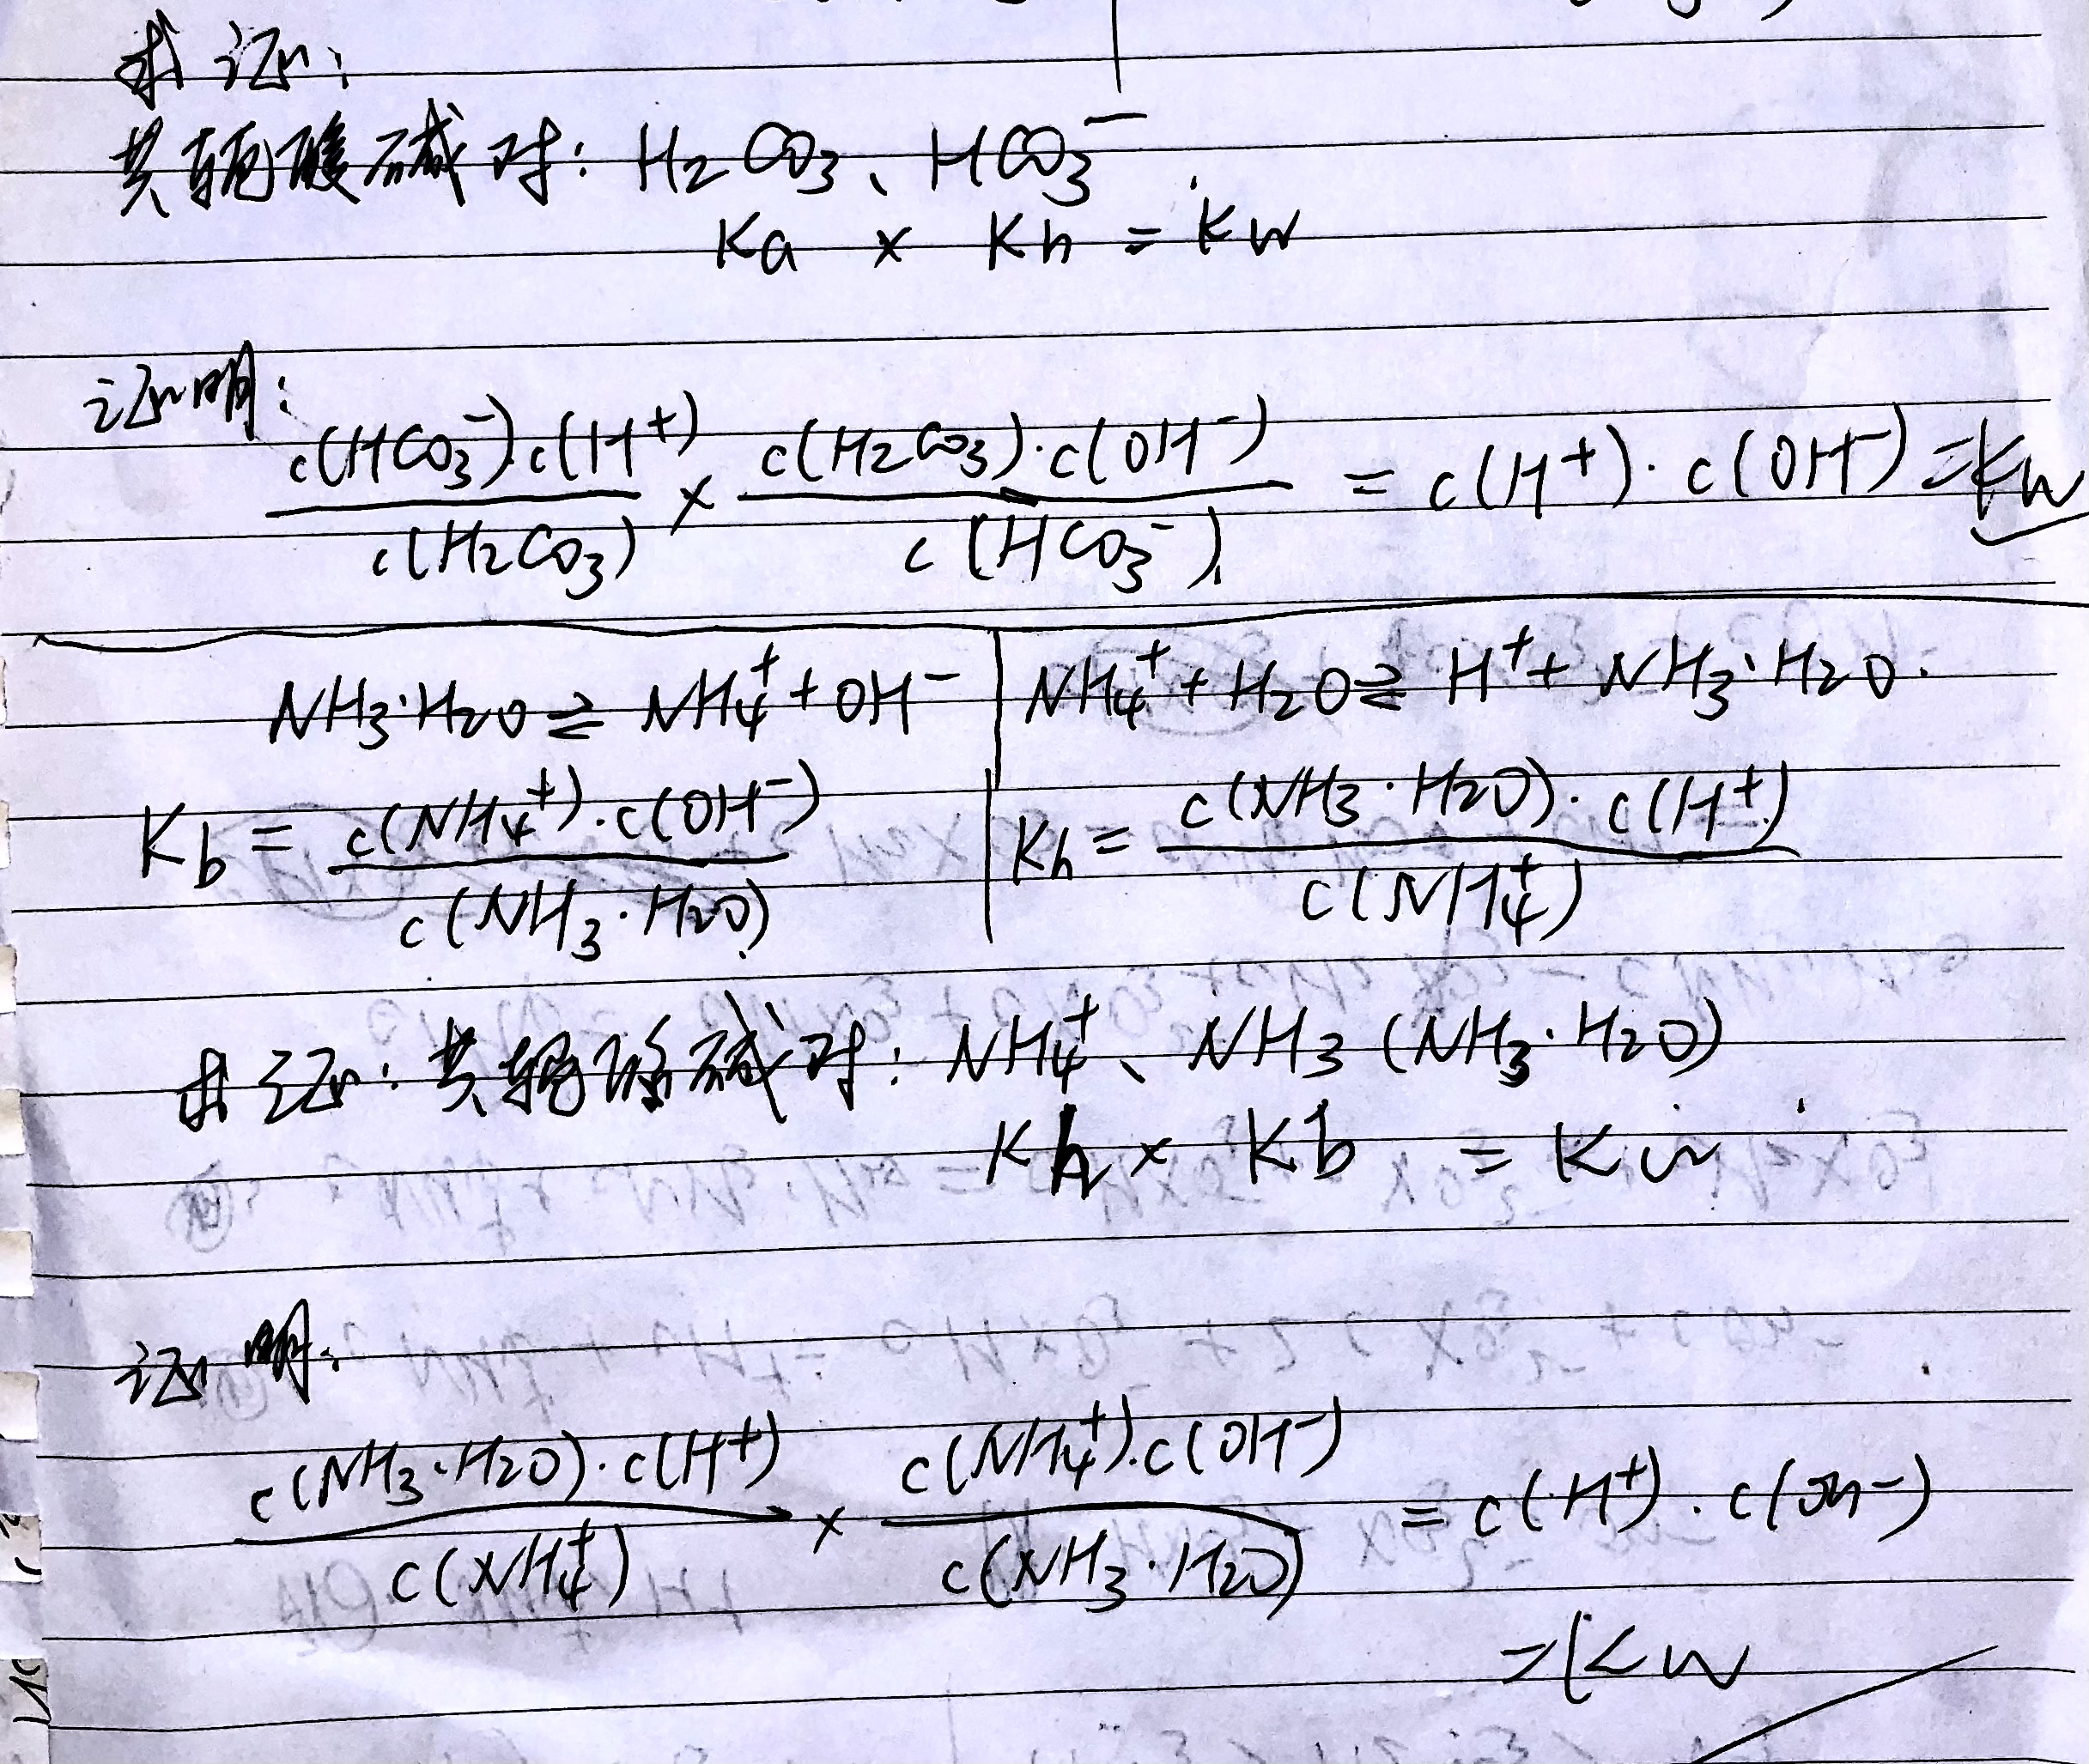 求证：
共轭酸碱对：H₂CO₃、HCO₃⁻.
Ka × Kh = Kw
证明：
c(HCO₃⁻)·c(H⁺)/c(H₂CO₃) × c(H₂CO₃)·c(OH⁻)/c(HCO₃⁻) = c(H⁺)·c(OH⁻) = Kw
NH₃·H₂O ⇌ NH₄⁺ + OH⁻ | NH₄⁺ + H₂O ⇌ H⁺ + NH₃·H₂O.
Kb = c(NH₄⁺)·c(OH⁻)/c(NH₃·H₂O) | Kh = c(NH₃·H₂O)·c(H⁺)/c(NH₄⁺)
求证：共轭酸碱对：NH₄⁺、NH₃ (NH₃·H₂O)
Kh × Kb = Kw
证明：
c(NH₃·H₂O)·c(H⁺)/c(NH₄⁺) × c(NH₄⁺)·c(OH⁻)/c(NH₃·H₂O) = c(H⁺)·c(OH⁻)
= Kw